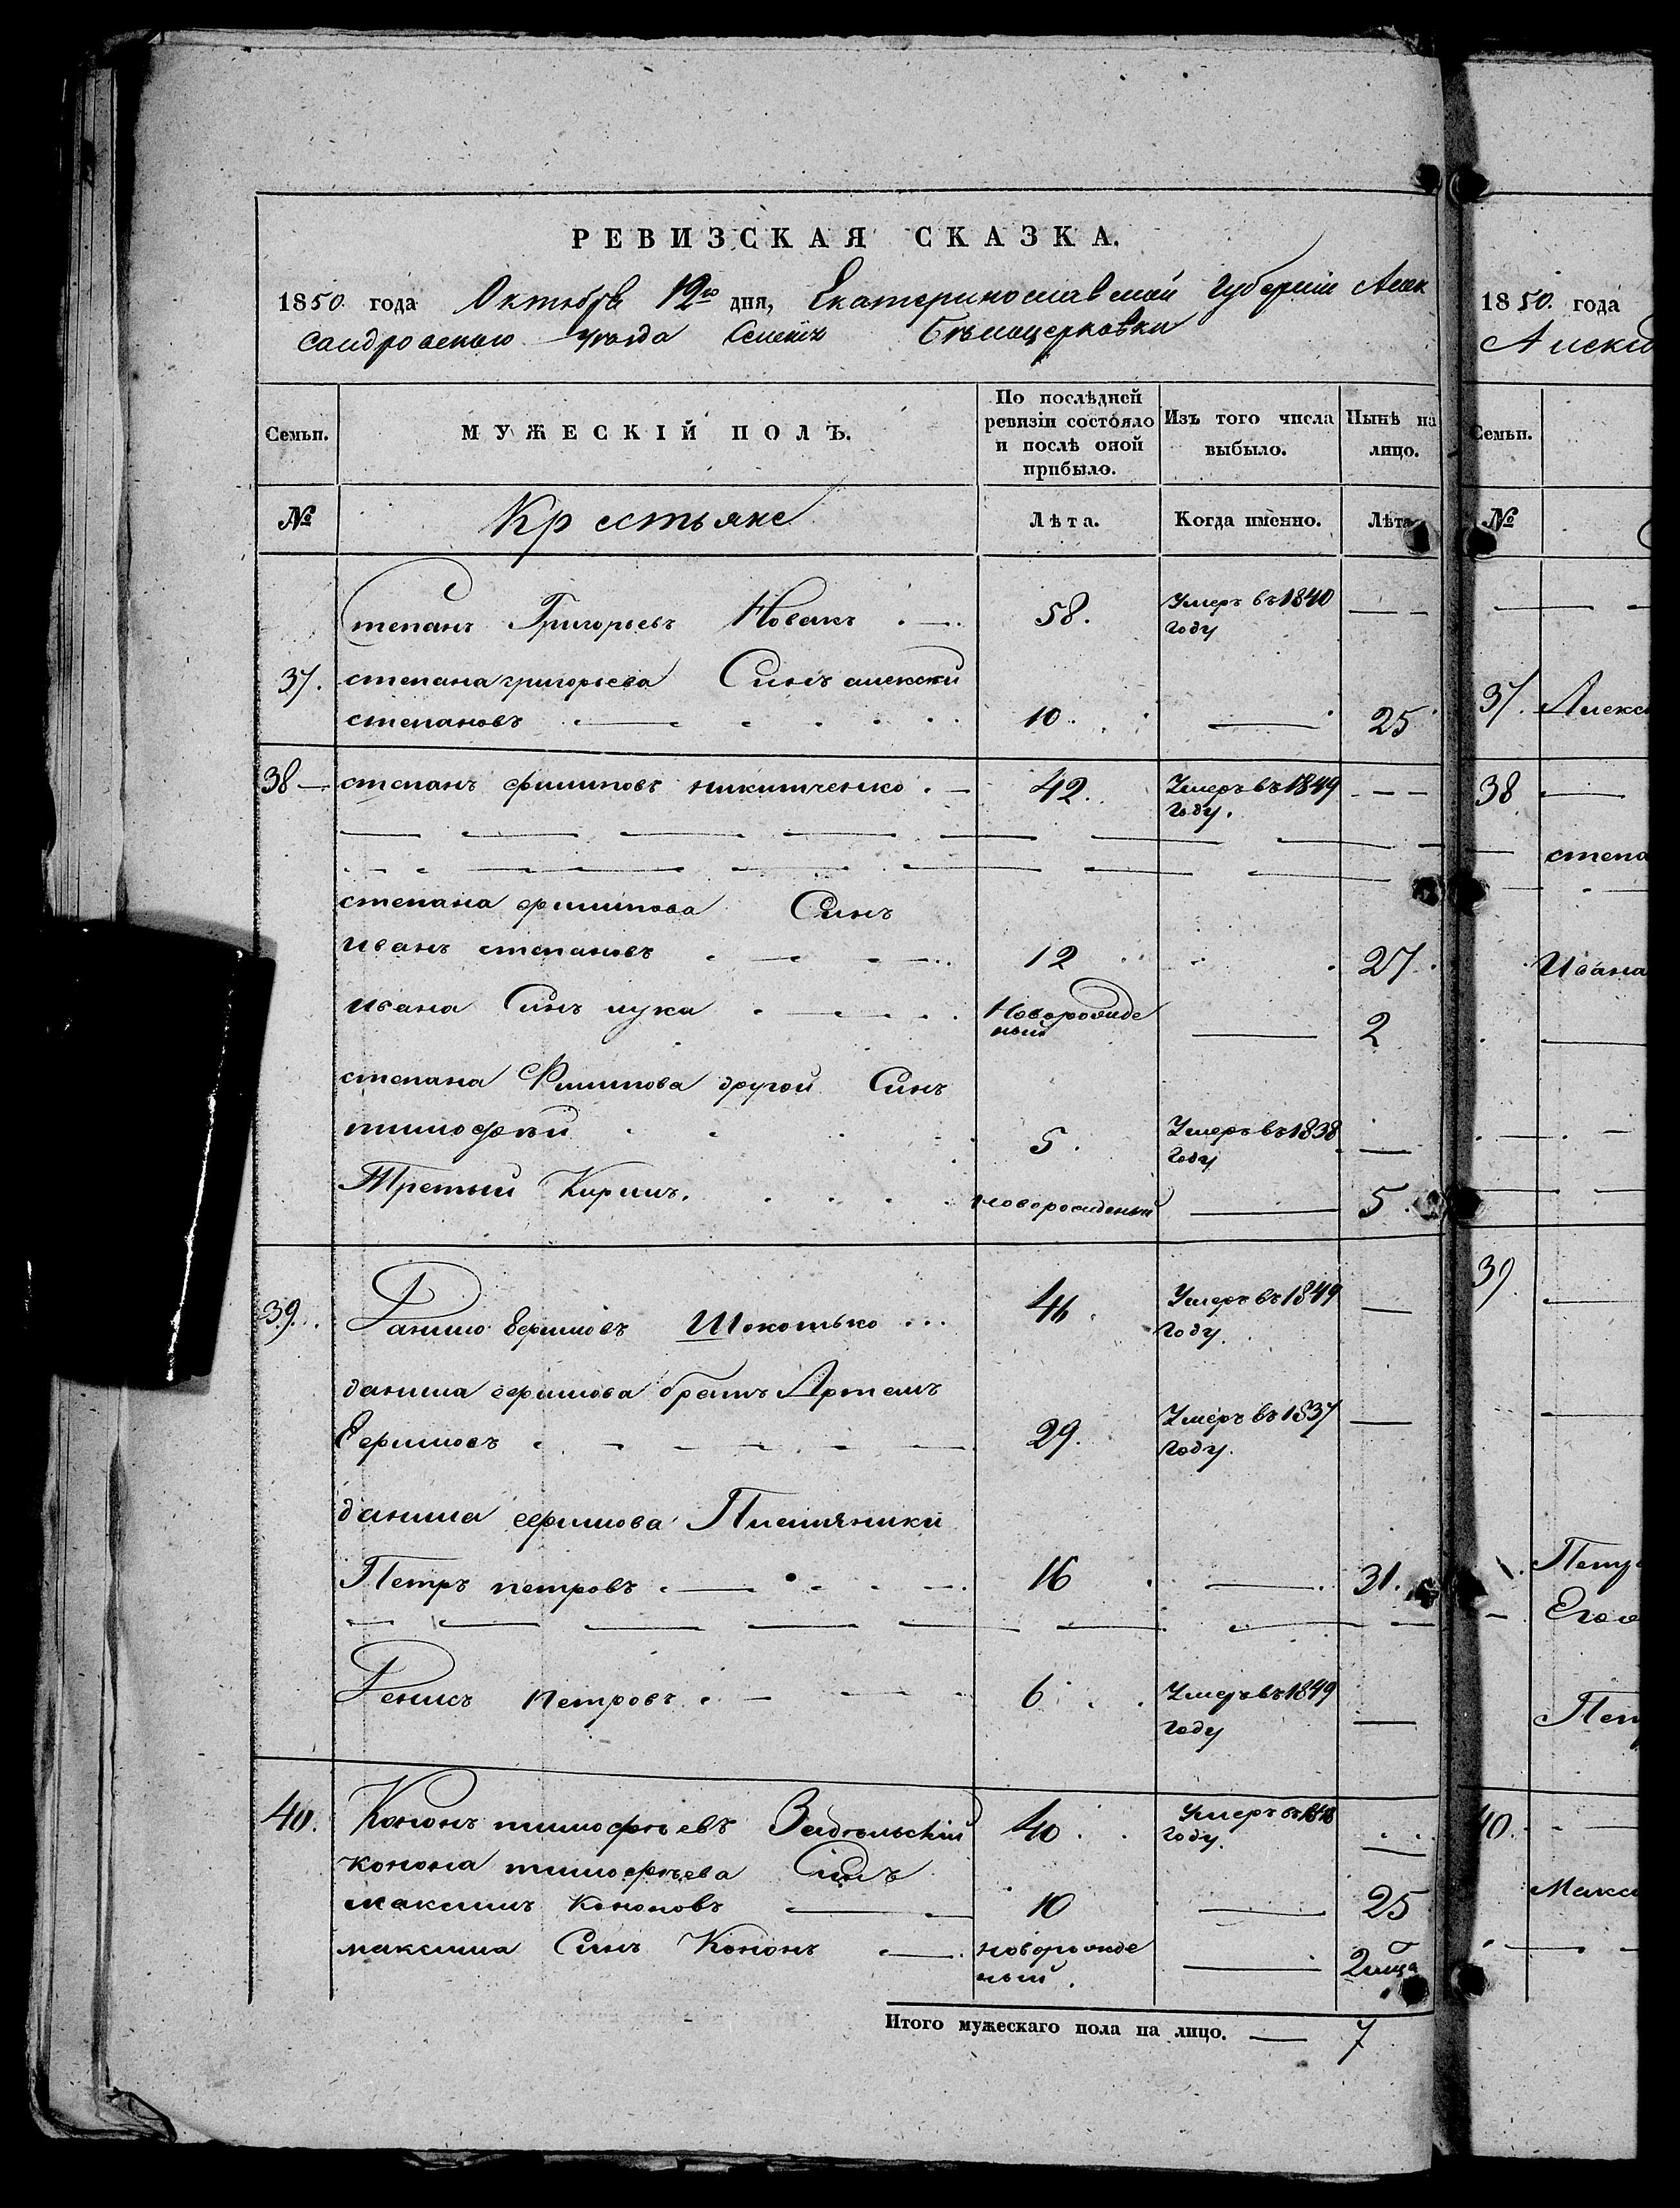 РЕВИЗСКАЯ СКАЗКА.
1850 года Октября 19го дня, Екатеринославской Губерніи Алек
сандровскаго уѣзда Бѣлоцерковки
Семьи.
МУЖЕСКІЙ ПОЛЪ.
По послѣдней ревизіи состояло и послѣ оной прибыло.
Изъ того числа выбыло.
Нынѣ на лицо.
№ Крестьяне Лѣта. Когда именно. Лѣта
Степанъ Григорьевъ Новакъ 58. Умеръ въ 1840 году
37. степана григорьева Синъ алексей
степановъ 10. 25
38 степанъ филиповъ никитченко 42. Умеръ въ 1849 году.
степана филипова Синъ
иванъ степановъ 12 27
ивана Синъ лука Новорожденый 2
степана Филипова другой Синъ
тимофѣй 5. Умеръ въ 1838 году
Третьий Кирилъ. новорожденый 5
39. Данило Ефимовъ Шокотько 46 Умеръ въ 1849 году.
данила ефимова братъ Артемъ
Ефимовъ 29. Умеръ въ 1837 году.
данила ефимова Племяники
Петръ петровъ 16 31.
Денисъ петровъ 6 Умеръ въ 1849 году
40. Кононъ тимофѣевъ 40. Умеръ въ году.
конона тимофѣева Синъ
максимъ Кононовъ 10 25
максима Синъ Кононъ новорожденый. 2
Итого мужескаго пола на лицо. 7
1850. года
Семьи.
№
37. Алекс
38
степа
Ивана
39
Петр
Его
Пет
40.
Макси